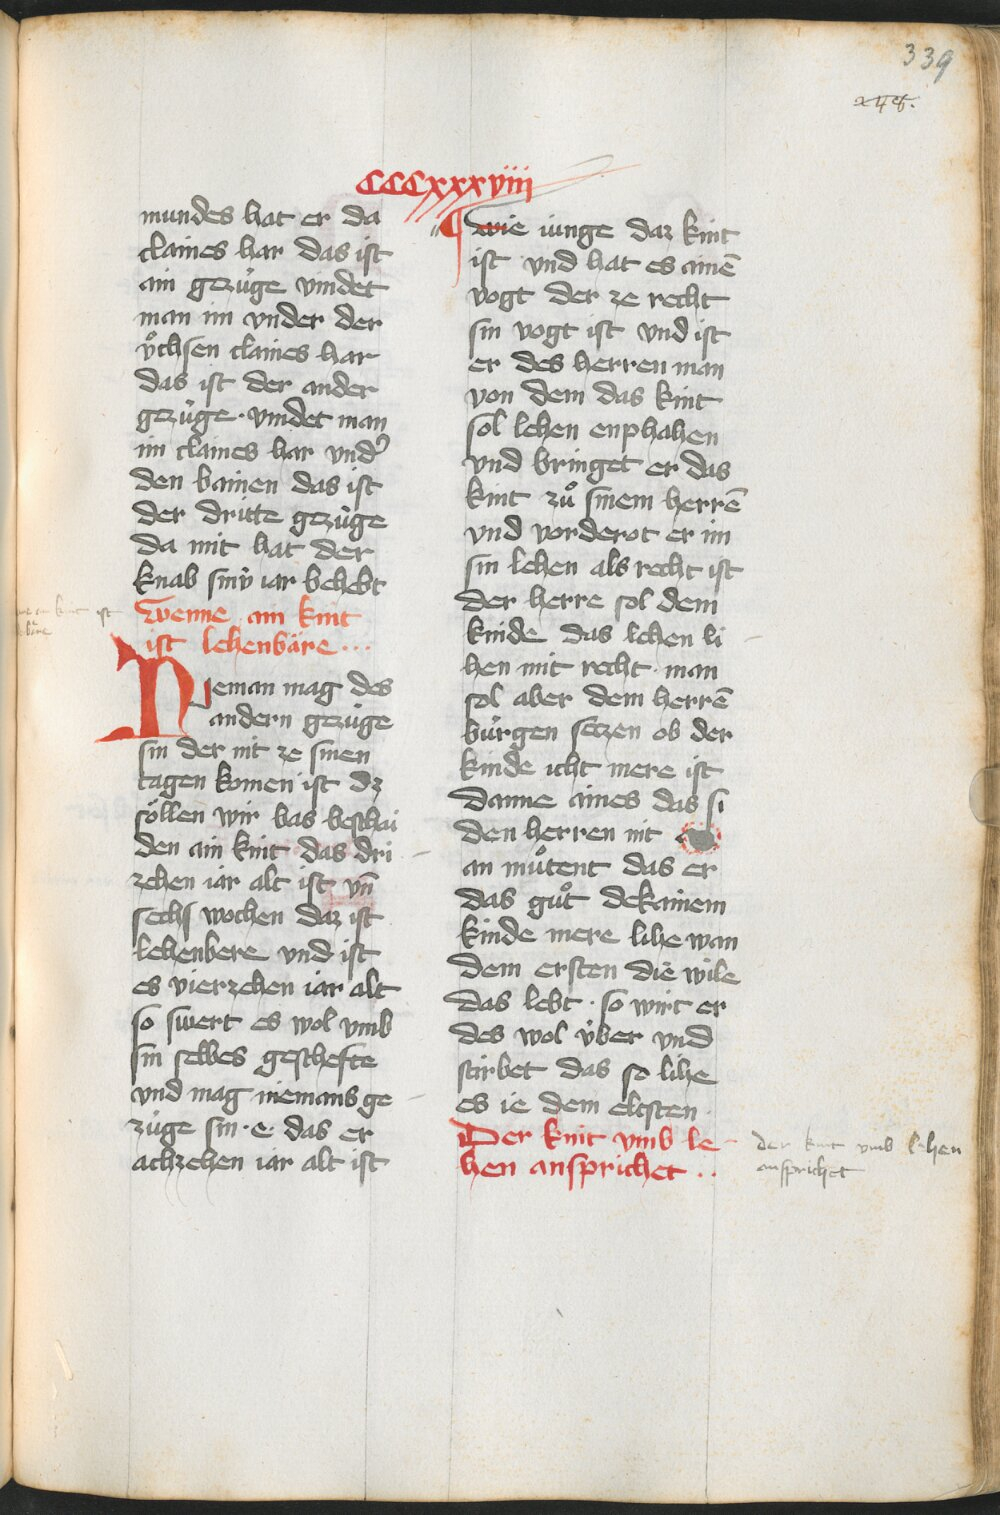 339
CCCxxxviii
mundes hat er da
claines har das ist
ain gezùge vindet
man im vnder der
v̊chsen claines har
das ist der ander
gezùge · vindet man
im claines har vnd᾽
den bainen das ist
der dritte gezùge
da mit hat der
knab sinù iar behebt
wenne ain kint
ist lehenbäre · · ·
Nieman mag des
andern gezùge
sin der nit ze sinen
tagen komen ist dz
söllen wir bas beschai
den ain kint das dri
zehen iar alt ist vn̄
sechs wochen daz ist
lehenbere vnd ist
es vierzehen iar alt
so swert es wol vmb
sin selbes geschefte
vnd mag niemans ge
zùge sin · e · das er
achzehen iar alt ist
wie iunge daz kint
ist vnd hat es ainē
vogt der ze recht
sin vogt ist vnd ist
er des herren man
von dem das kint
sol lehen enphahen
vnd bringet er das
kint zů sinem herrē
vnd vorderot er im
sin lehen als recht ist
der herre sol dem
kinde das lehen li
hen mit recht · man
sol aber dem herrē
bùrgen seczen ob der
kinde icht mere ist
danne aines das si
den herren nit
an můtent das er
das gůt dekainem
kinde mere lihe wan
dem ersten die wile
das lebt · so wirt er
des wol ùber vnd
stirbet das so lihe
es ie dem eltsten
Der kint vmb le
hen ansprichet · ·
der kint vmb lehen
ansprichet